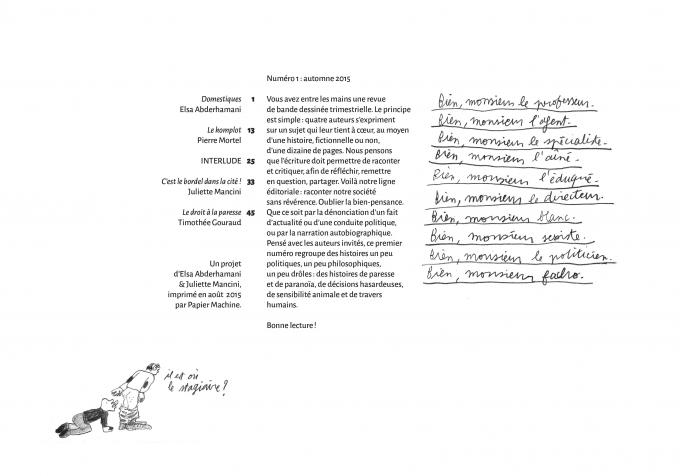 Numéro 1 : automne 2015
Domestiques 1
Elsa Abderhamani
Le komplot 13
Pierre Mortel
INTERLUDE 25
C'est le bordel dans la cité ! 33
Juliette Mancini
Le droit à la paresse 45
Timothée Gouraud
Un projet
d'Elsa Abderhamani
& Juliette Mancini,
imprimé en août 2015
par Papier Machine.
Vous avez entre les mains une revue
de bande dessinée trimestrielle. Le principe
est simple : quatre auteurs s'expriment
sur un sujet qui leur tient à cœur, au moyen
d'une histoire, fictionnelle ou non,
d'une dizaine de pages. Nous pensons
que l'écriture doit permettre de raconter
et critiquer, afin de réfléchir, remettre
en question, partager. Voilà notre ligne
éditoriale : raconter notre société
sans révérence. Oublier la bien-pensance.
Que ce soit par la dénonciation d'un fait
d'actualité ou d'une conduite politique,
ou par la narration autobiographique.
Pensé avec les auteurs invités, ce premier
numéro regroupe des histoires un peu
politiques, un peu philosophiques,
un peu drôles : des histoires de paresse
et de paranoïa, de décisions hasardeuses,
de sensibilité animale et de travers
humains.
Bonne lecture !
Bien, monsieur le professeur.
Bien, monsieur l'agent.
Bien, monsieur le spécialiste.
Bien, monsieur l'aîné.
Bien, monsieur l'éduqué.
Bien, monsieur le directeur.
Bien, monsieur blanc.
Bien, monsieur sexiste.
Bien, monsieur le politicien.
Bien, monsieur facho.
il est où
le stagiaire ?